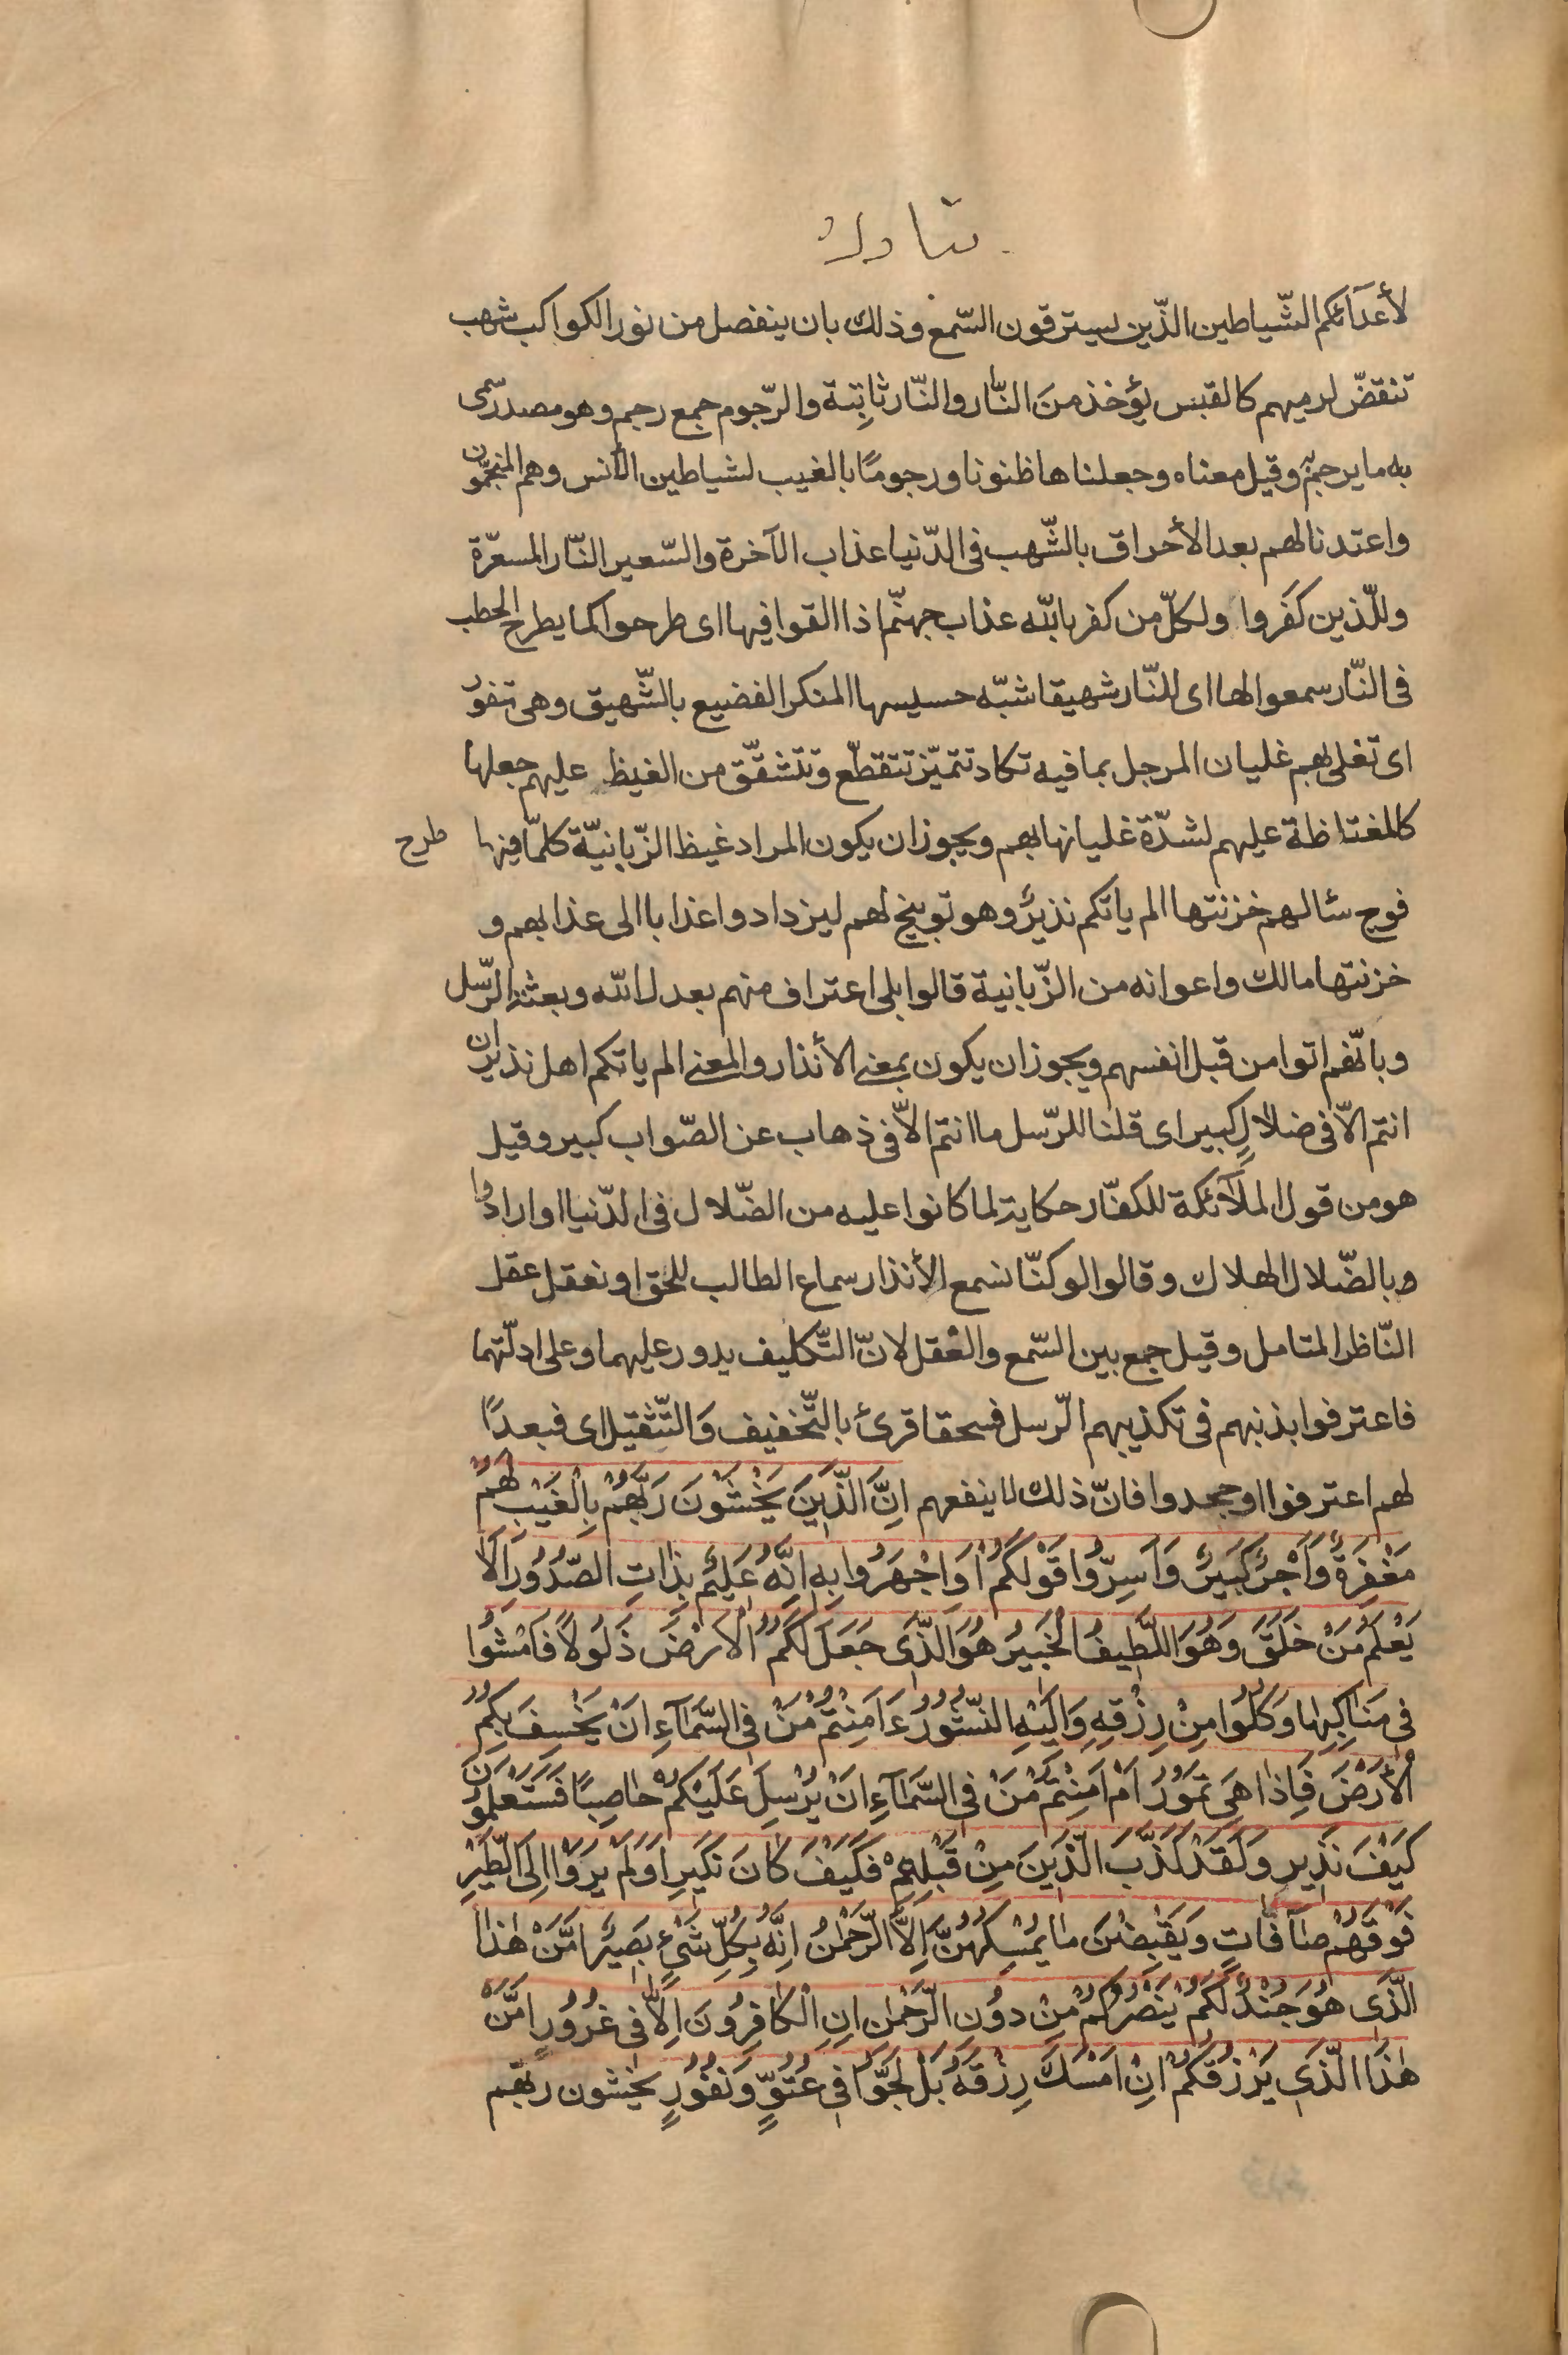 تبارك
لأعدآئكم الشّياطين الذّين يسترقون السّمع وذلك بان ينفصل من نور الكواكب شهب
تنقضّ لرميهم كالقبس يؤخذ منَ النّار والنّار ثابِتة والرّجوم جمع رجم وهو مصدر سمى
به ما يرجم به وقيل معناه وجعلناها ظنونا ورجومًا بالغيب لشياطين الأنس وهم المنجّمون
واعتدنا لهم بعد الأحراق بالشّهب فى الدّنيا عذاب الآخرة والسّعير النّار المسعّرة
وللّذين كفَروا ولكلّ من كفر بالله عذاب جهنّم اذا القوا فيها اى طرحوا كما يطرح الحطب
فى النّار سمعوا لها اى للنّار شهيقا شبّه حسيسها المنكر الفضيع بالشّهيق وهى تفور
اى تغلى بهم غليان المرجل بما فيه تكاد تتميّز تتقطّع وتتشقّق من الغيظ عليهم جعلها
كالمغتاظة عليهم لشدّة غليانها بهم ويجوز ان يكون المراد غيظ الزّبانيّة كلمّا فيها طرح
فوج سئالهم خزنتها الم ياتكم نذيرٌ وهو توبيخ لهم ليزدادوا عذابا الى عذابهم و
خزنتها مالك واعوانه من الزّبانية قالوا بلى اعتراف منهم بعدل الله وبعثة الرّسل
وبانّهم اتوا من قبل انفسهم ويجوز ان يكون بمعنى الأنذار والمعنى الم ياتكم اهل نذير ان
انتم الّا فى ضلالٍ كبير اى قلنا للرّسل ما انتم الّا فى ذهاب عن الصّواب كبير وقيل
هو من قول الملآئكة للكفّار حكاية لما كانوا عليه من الضّلال فى الدّنيا او ارادوا
وبالضّلال الهلاك وقالوا لو كنّا نسمع الأنذار سماع الطالب للحق او نعقل عقل
النّاظر المتامل وقيل جمع بين السّمع والعْقل لانّ التّكليف يدور عليهما وعلى ادلّتهما
فاعترفوا بذنبهم فى تكذيبهم الرّسل فسحقا قرئ بالتّخفيف وَالتّثقيل اى فبعدًا
لهم اعترفوا او جحدوا فانّ ذلك لا ينفعهم اِنَّ الَّذينَ يَخْشَوْنَ رَبَّهُمْ بِالْغَيْبِ لَهُمْ
مَغْفِرَةٌ وَاَجْرٌ كَبيرٌ وَاَسِرّوُا قَوْلَكُمْ اَوِ اجْهَرُوا بِهِ اِنَّهُ عَليمٌ بِذاتِ الصُّدُورِ اَلا
يَعْلَمُ مَنْ خَلَقَ وَهُوَ اللَّطيفُ الْخَبيرُ هُوَ الَّذى جَعَلَ لَكُمُ الْاَرْضَ ذَلُولاً فَامْشُوا
فى مَناكِبِها وَكُلُوا مِنْ رِزْقِهِ وَاِلَيْهِ النُّشُورُ ءَاَمِنْتُمْ مَنْ فِى السَّمآءِ اَنْ يَخْسِفَ بِكُمُ
الْأَرْضَ فَاِذا هِىَ تَمُورُ اَمْ اَمِنْتُمْ مَنْ فِى السَّمآءِ اَنْ يُرْسِلَ عَلَيْكُمْ حاصِبًا فَسَتَعْلَمُونَ
كَيْفَ نَذيرِ وَلَقَدْ كَذَّبَ الَّذينَ مِنْ قَبْلِهِمْ فَكَيْفَ كانَ نَكيرِ اَوَلَمْ يَرَوْا اِلَى الطَّيْرِ
فَوْقَهُمْ صآفّاتٍ وَيَقْبِضْنَ ما يُمْسِكُهُنَّ اِلاَّ الرَّحْمنُ اِنَّهُ بِكُلِّ شَىْءٍ بَصيرٌ اَمَّنْ هذَا
الَّذى هُوَ جُنْدٌ لَكُمْ يَنْصُرُكُمْ مِنْ دوُنِ الرَّحْمنِ اِنِ الْكافِرُونَ اِلاّ فى غُرُورٍ اَمَّنْ
هٰذَا الَّذى يَرْزُقُكُمْ اِنْ اَمْسَكَ رِزْقَهُ بَلْ لَجُّوا فى عُتُوٍّ وَنُفُورٍ يخشون ربّهم